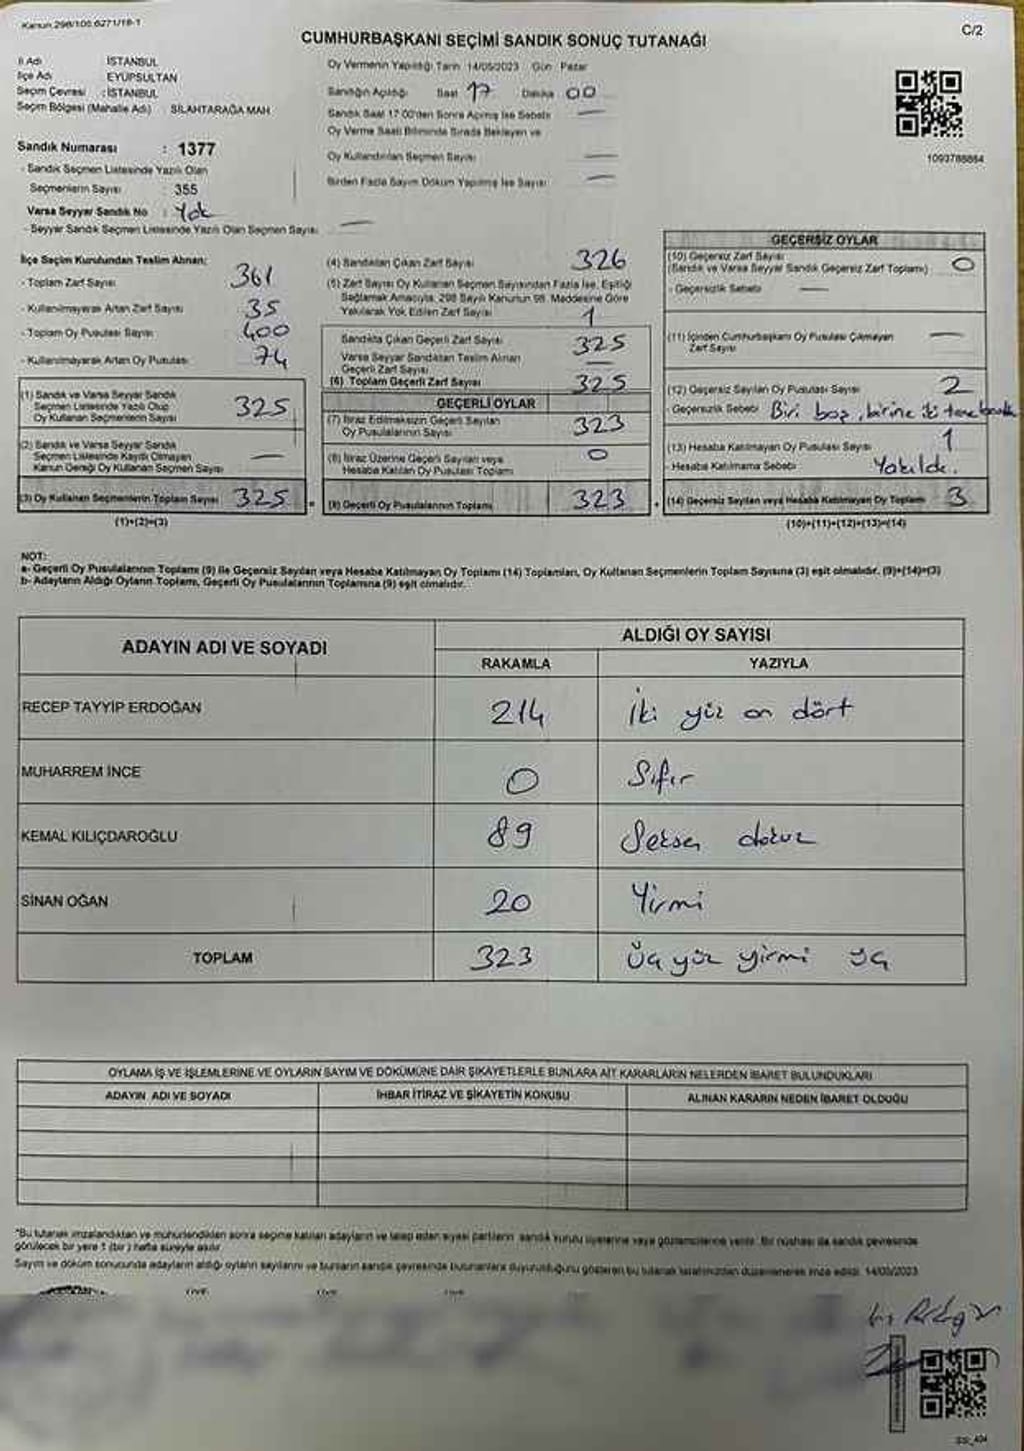 Kanun 298/105 6271/18-1
C/2
CUMHURBAŞKANI SEÇİMİ SANDIK SONUÇ TUTANAĞI
İl Adı : İSTANBUL
İlçe Adı : EYÜPSULTAN
Seçim Çevresi : İSTANBUL
Seçim Bölgesi (Mahalle Adı) SİLAHTARAĞA MAH
Sandık Numarası : 1377
- Sandık Seçmen Listesinde Yazılı Olan
Seçmenlerin Sayısı 355
Varsa Seyyar Sandık No : Yok
- Seyyar Sandık Seçmen Listesinde Yazılı Olan Seçmen Sayısı
Oy Vermenin Yapıldığı Tarih 14/05/2023 Gün Pazar
Sandığın Açıldığı Saat 17 Dakika 00
Sandık Saat 17.00'den Sonra Açılmış İse Sebebi
Oy Verme Saati Bitiminde Sırada Bekleyen ve
Oy Kullandırılan Seçmen Sayısı
Birden Fazla Sayım Döküm Yapılmış İse Sayısı
1093788864
İlçe Seçim Kurulundan Teslim Alınan:
- Toplam Zarf Sayısı 361
- Kullanılmayarak Artan Zarf Sayısı 35
- Toplam Oy Pusulası Sayısı 400
- Kullanılmayarak Artan Oy Pusulası 74
(1) Sandık ve Varsa Seyyar Sandık
Seçmen Listesinde Yazılı Olup
Oy Kullanan Seçmenlerin Sayısı 325
(2) Sandık ve Varsa Seyyar Sandık
Seçmen Listesinde Kayıtlı Olmayan
Kanun Gereği Oy Kullanan Seçmen Sayısı —
(3) Oy Kullanan Seçmenlerin Toplam Sayısı 325
(1)+(2)=(3)
(4) Sandıktan Çıkan Zarf Sayısı 326
(5) Zarf Sayısı Oy Kullanan Seçmen Sayısından Fazla İse, Eşitliği
Sağlamak Amacıyla, 298 Sayılı Kanunun 98. Maddesine Göre
Yakılarak Yok Edilen Zarf Sayısı 1
Sandıkta Çıkan Geçerli Zarf Sayısı 325
Varsa Seyyar Sandıktan Teslim Alınan
Geçerli Zarf Sayısı —
(6) Toplam Geçerli Zarf Sayısı 325
GEÇERLİ OYLAR
(7) İtiraz Edilmeksizin Geçerli Sayılan
Oy Pusulalarının Sayısı 323
(8) İtiraz Üzerine Geçerli Sayılan veya
Hesaba Katılan Oy Pusulası Toplamı 0
(9) Geçerli Oy Pusulalarının Toplamı 323
GEÇERSİZ OYLAR
(10) Geçersiz Zarf Sayısı
(Sandık ve Varsa Seyyar Sandık Geçersiz Zarf Toplamı) 0
- Geçersizlik Sebebi —
(11) İçinden Cumhurbaşkanı Oy Pusulası Çıkmayan
Zarf Sayısı —
(12) Geçersiz Sayılan Oy Pusulası Sayısı 2
- Geçersizlik Sebebi Biri boş, birine iki tane
(13) Hesaba Katılmayan Oy Pusulası Sayısı 1
- Hesaba Katılmama Sebebi Yakıldı.
(14) Geçersiz Sayılan veya Hesaba Katılmayan Oy Toplamı 3
(10)+(11)+(12)+(13)=(14)
NOT:
a- Geçerli Oy Pusulalarının Toplamı (9) İle Geçersiz Sayılan veya Hesaba Katılmayan Oy Toplamı (14) Toplamları, Oy Kullanan Seçmenlerin Toplam Sayısına (3) eşit olmalıdır. (9)+(14)=(3)
b- Adayların Aldığı Oyların Toplamı, Geçerli Oy Pusulalarının Toplamına (9) eşit olmalıdır.
ADAYIN ADI VE SOYADI
ALDIĞI OY SAYISI
RAKAMLA YAZIYLA
RECEP TAYYİP ERDOĞAN 214 İki yüz on dört
MUHARREM İNCE 0 Sıfır
KEMAL KILIÇDAROĞLU 89 Seksen dokuz
SİNAN OĞAN 20 Yirmi
TOPLAM 323 Üç yüz yirmi üç
OYLAMA İŞ VE İŞLEMLERİNE VE OYLARIN SAYIM VE DÖKÜMÜNE DAİR ŞİKAYETLERLE BUNLARA AİT KARARLARIN NELERDEN İBARET BULUNDUKLARI
ADAYIN ADI VE SOYADI İHBAR İTİRAZ VE ŞİKAYETİN KONUSU ALINAN KARARIN NEDEN İBARET OLDUĞU
"Bu tutanak imzalandıktan ve mühürlendikten sonra seçime katılan adayların ve talep eden siyasi partilerin sandık kurulu üyelerine veya gözlemcilerine verilir. Bir nüshası da sandık çevresinde
görülecek bir yere 1 (bir) hafta süreyle asılır.
Sayım ve döküm sonucunda adayların aldığı oyların sayılarını ve bunların sandık çevresinde bulunanlara duyurulduğunu gösteren bu tutanak tarafımızdan düzenlenerek imza edildi. 14/05/2023